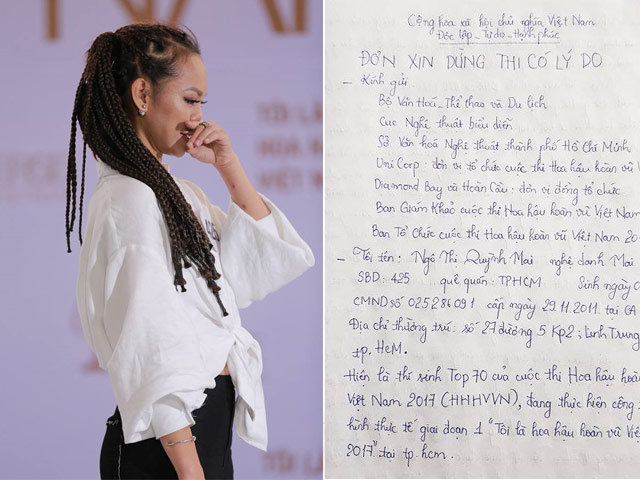 TÔI LÀ
HOA H
VIỆT N
Cộng hòa xã hội chủ nghĩa Việt Nam
Độc lập - Tự do - Hạnh phúc
ĐƠN XIN DỪNG THI CÓ LÝ DO
- Kính gửi
Bộ Văn Hoá - Thể thao và Du lịch
Cục Nghệ thuật biểu diễn
Sở Văn hoá Nghệ thuật thành phố Hồ Chí Minh
Uni Corp : đơn vị tổ chức cuộc thi Hoa hậu hoàn vũ V
Diamond Bay và Hoàn Cầu : đơn vị đồng tổ chức
Ban Giám Khảo cuộc thi Hoa hậu hoàn vũ Việt Nam
Ban Tổ Chức cuộc thi Hoa hậu hoàn vũ Việt Nam 20
- Tôi tên : Ngô Thị Quỳnh Mai nghệ danh Mai
SBD : 425 quê quán : TPHCM Sinh ngày 0
CMND số 025286091 cấp ngày 29.11.2011 tại CA
Địa chỉ thường trú : số 27 đường 5 Kp2 ; Linh Trung
tp. HCM.
Hiện là thí sinh Top 70 của cuộc thi Hoa hậu hoàn
Việt Nam 2017 (HHHVVN), đang thực hiện công
hình thực tế giai đoạn 1 "Tôi là hoa hậu hoàn vũ Việ
2017" tại tp. hcm.